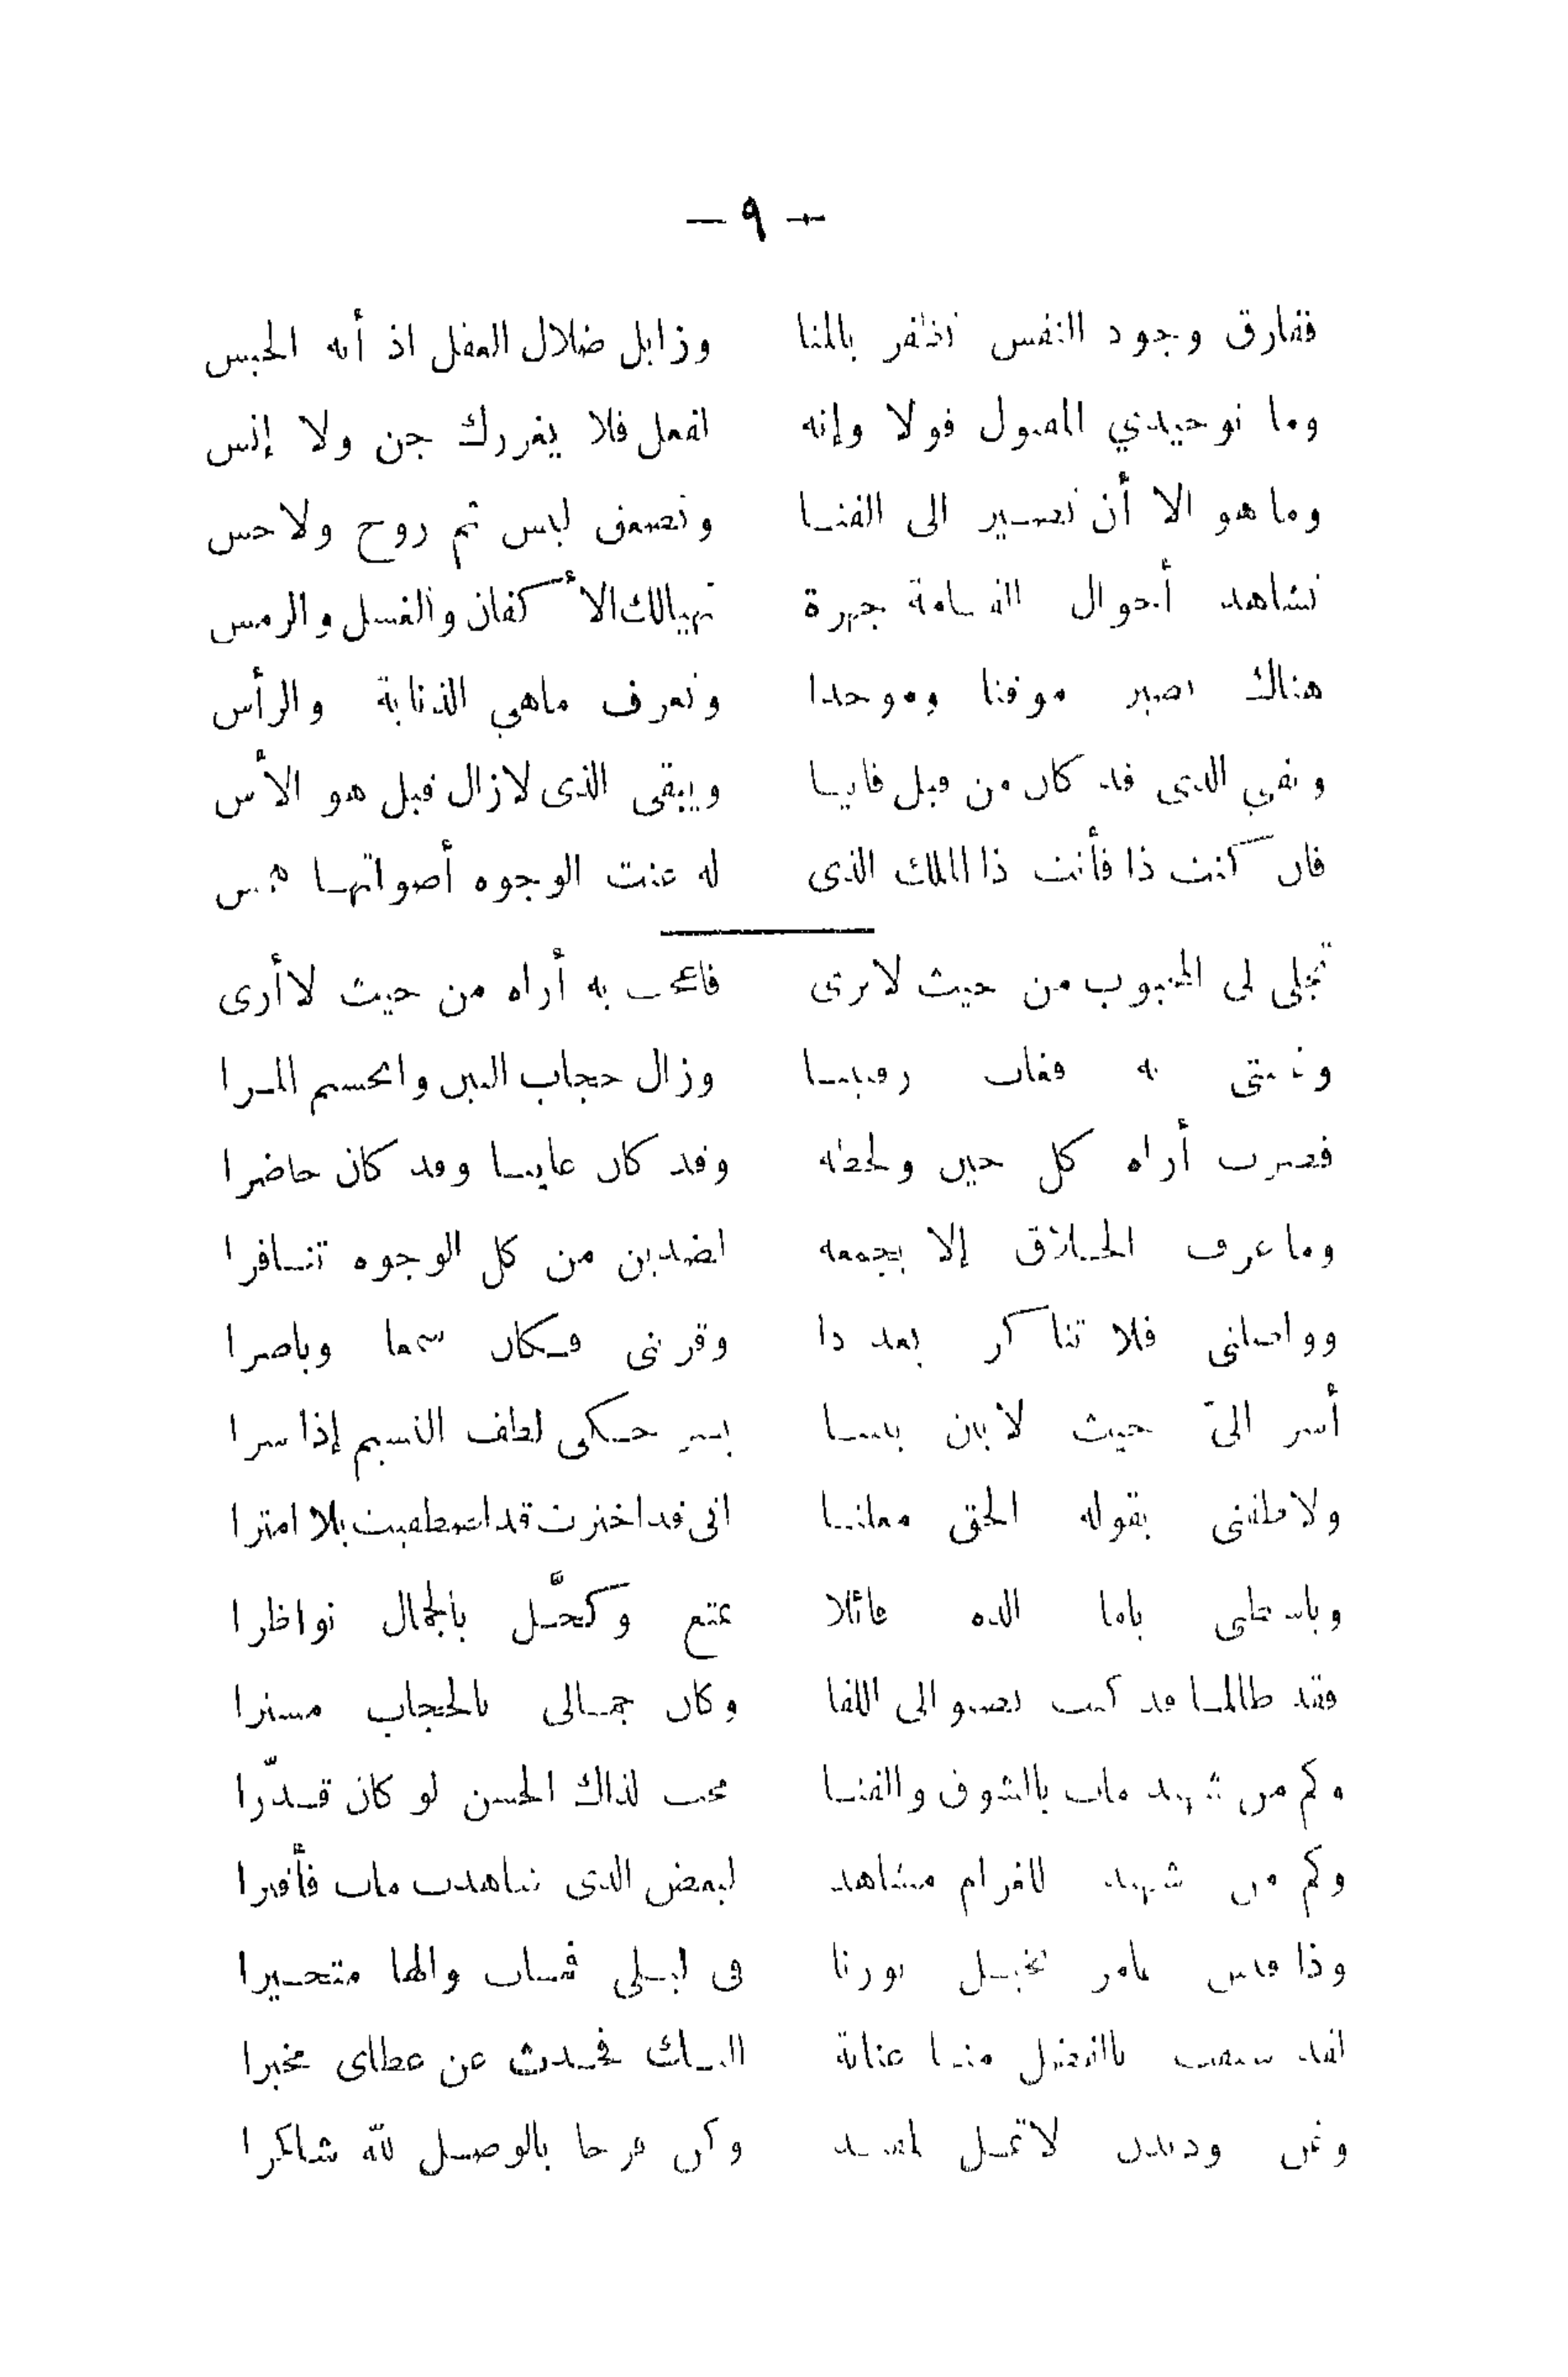 — ٩ —
ففارق وجود النفس تظفر بالمنا وزايل ضلال العقل اذ أنه الحبس
وما توحيدي المقبول قولا وإنه لفعل فلا يغررك جن ولا إنس
وما هو الا أن تصير الى الفنا وتصعق ليس ثم روح ولا حس
تشاهد أحوال القيامة جهرة تهيالك الأكفان والغسل والرمس
هناك تصير موقنا وموحدا وتعرف ماهي الذنابة والرأس
ونفي الذي قد كان من قبل فانيا ويبقى الذى لازال قبل هو الأس
فان كنت ذا فأنت ذا الملك الذى له عنت الوجوه أصواتها همس
تجلى لى المحبوب من حيث لا يرى فاعجب به أراه من حيث لا أرى
وغيبنى به فغاب رقيبنا وزال حجاب البين وانحسم المرا
فصرت أراه كل حين ولحظة وقد كان غايبا وقد كان حاضرا
وما عرف الخلاق إلا بجمعه لضدين من كل الوجوه تنافرا
وواصلنى فلا تناكر بعد ذا وقربنى فكان سمعا وباصرا
أسر اليّ حيث لا بين بيننا بسر حكى لطف النسيم إذا سرا
ولاطفنى بقوله الحق معلنا انى قد اخترت قد اصطفيت بلا امترا
وباسطنى بما الذه قائلا تمتع وكحّل بالجمال نواظرا
فقد طالما قد كنت تصبو الى اللقا وكان جمالى بالحجاب مسترا
وكم من شهيد مات بالشوق والفنا محب لذاك الحسن لو كان قدّرا
وكم من شهيد للغرام مشاهد لبعض الذى شاهدت مات فأقبرا
وذا قيس عامر تخيل نورنا فى ليلى فمات والها متحيرا
لقد سبقت بالفضل منا عناية اليك فحدث عن عطاى مخبرا
وغن لا تمل وكن فرحا بالوصل لله شاكرا